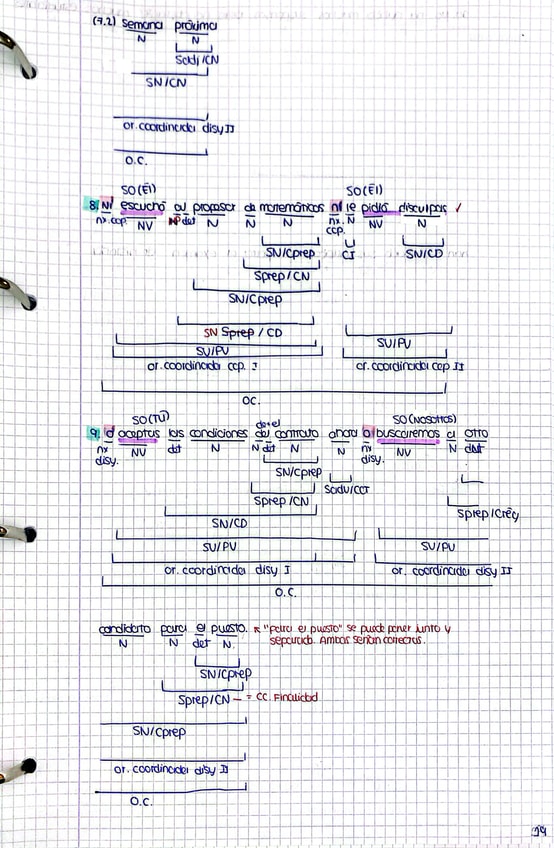 (7.2) Semana próxima
N N
Sadj/CN
SN/CN
or. coordinada disy II
O.C.
SO (ÉI) SO (ÉI)
8. Ni escuchó al profesor de matemáticas ni le pidió disculpas ✓
nx. cop. NV det N N N nx. cop. N NV N
SN/Cprep CI SN/CD
Sprep/CN
SN/Cprep
SN Sprep / CD
SV/PV SV/PV
or. coordinada cop. I or. coordinada cop II
OC.
SO (TÚ) de+el SO (Nosotros)
9. O aceptas las condiciones del contrato ahora o buscaremos a otro
nx disy. NV det N N det N N nx disy. NV N det
SN/Cprep Sadv/CCT
Sprep/CN Sprep/Creg
SN/CD
SV/PV SV/PV
or. coordinada disy I or. coordinada disy II
O.C.
candidato para el puesto. * "para el puesto" se puede poner junto y
N N det N. separado. Ambas serían correctas.
SN/Cprep
Sprep/CN - = CC. Finalidad
SN/Cprep
or. coordinada disy II
O.C.